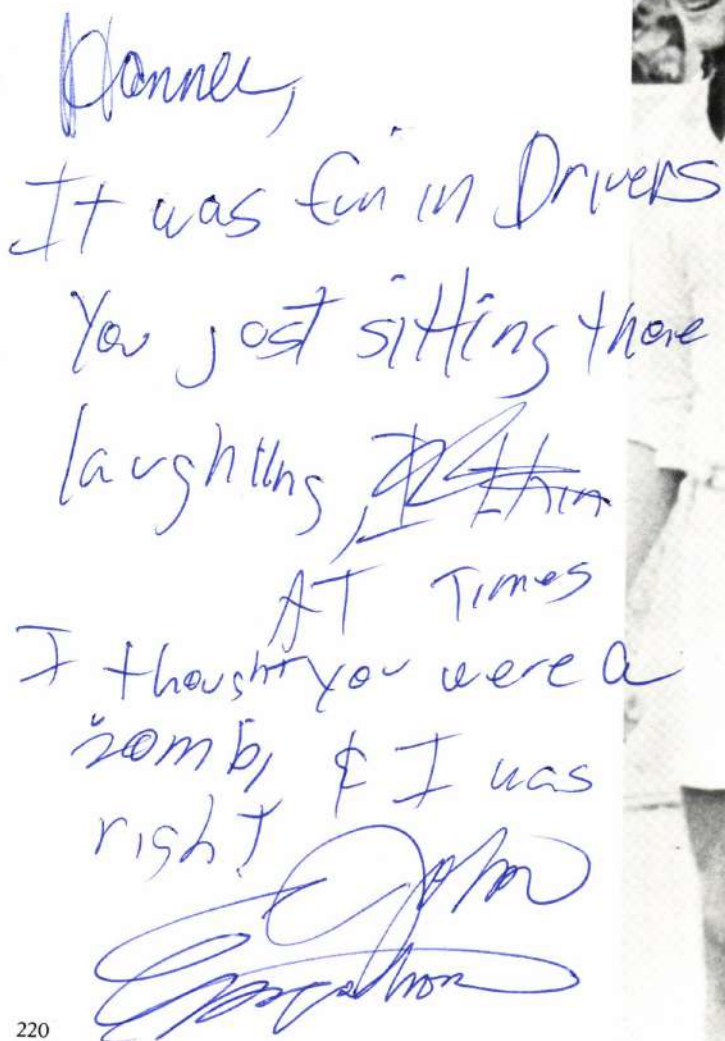 It was fun in Drivers
You just sitting there
laughiing, I thin
AT Times
I thought you were a
zombi & I was
right
John
220